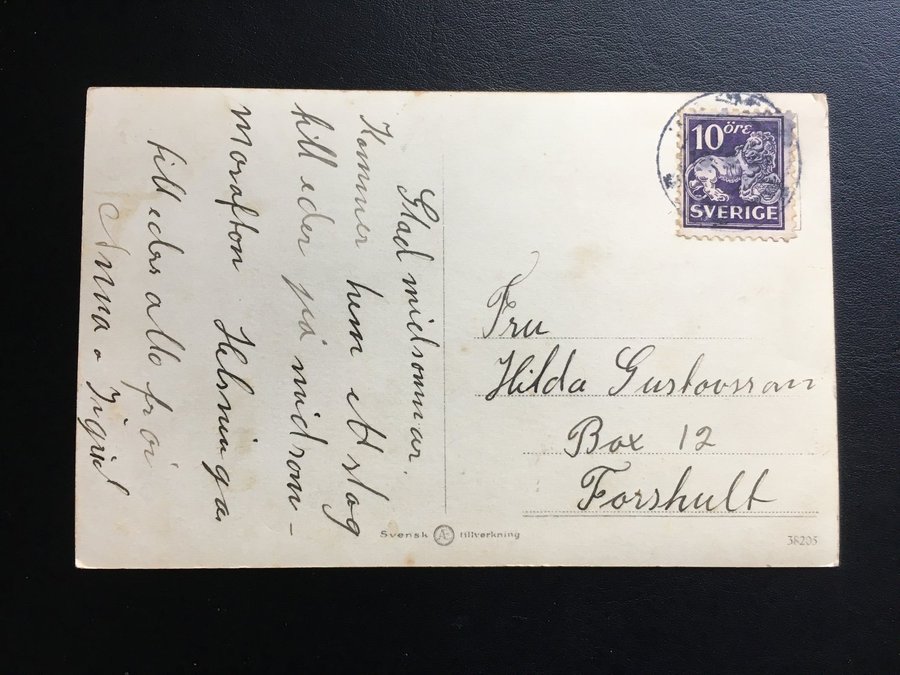 Glad midsommar.
Kommer hem ett slag
till eder på midsom-
marafton Helsningar
till eder alla från
Anna o Ingrid
10 öre
SVERIGE
Fru
Hilda Gustavsson
Box 12
Forshult
Svensk tillverkning
38205